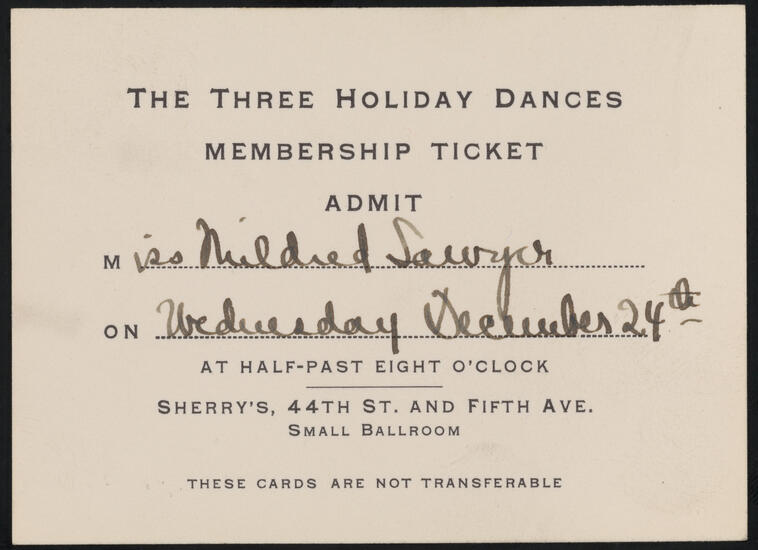 THE THREE HOLIDAY DANCES
MEMBERSHIP TICKET
ADMIT
Miss Mildred Sawyer
ON Wednesday December 24th
AT HALF-PAST EIGHT O'CLOCK
SHERRY'S, 44TH ST. AND FIFTH AVE.
SMALL BALLROOM
THESE CARDS ARE NOT TRANSFERABLE